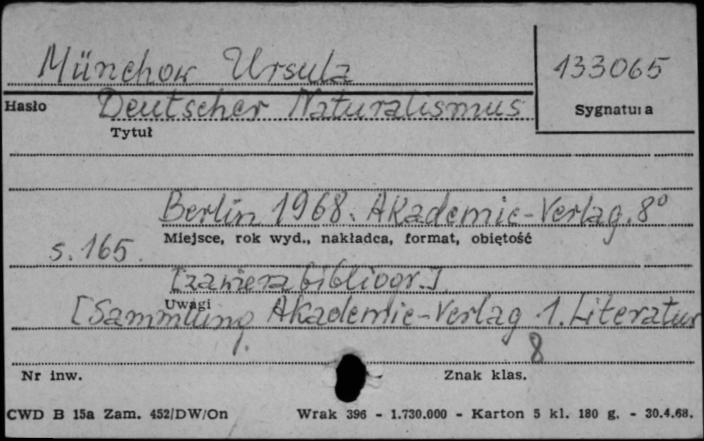 Münchow Ursula
133065
Hasło Deutscher Naturalismus
Sygnatura
Tytuł
Berlin 1968. Akademie-Verlag. 8°
s. 165. Miejsce, rok wyd., nakładca, format, objętość
[zawiera bibliogr.]
Uwagi
[Sammlung Akademie-Verlag 1. Literatur
8
Nr inw. Znak klas.
CWD B 15a Zam. 452/DW/On Wrak 396 - 1.730.000 - Karton 5 kl. 180 g. - 30.4.68.